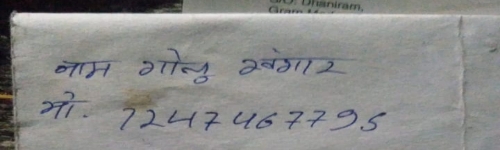 S/O: Dhaniram,
Gram
नाम गोलू खंगार
मो. 7247467795